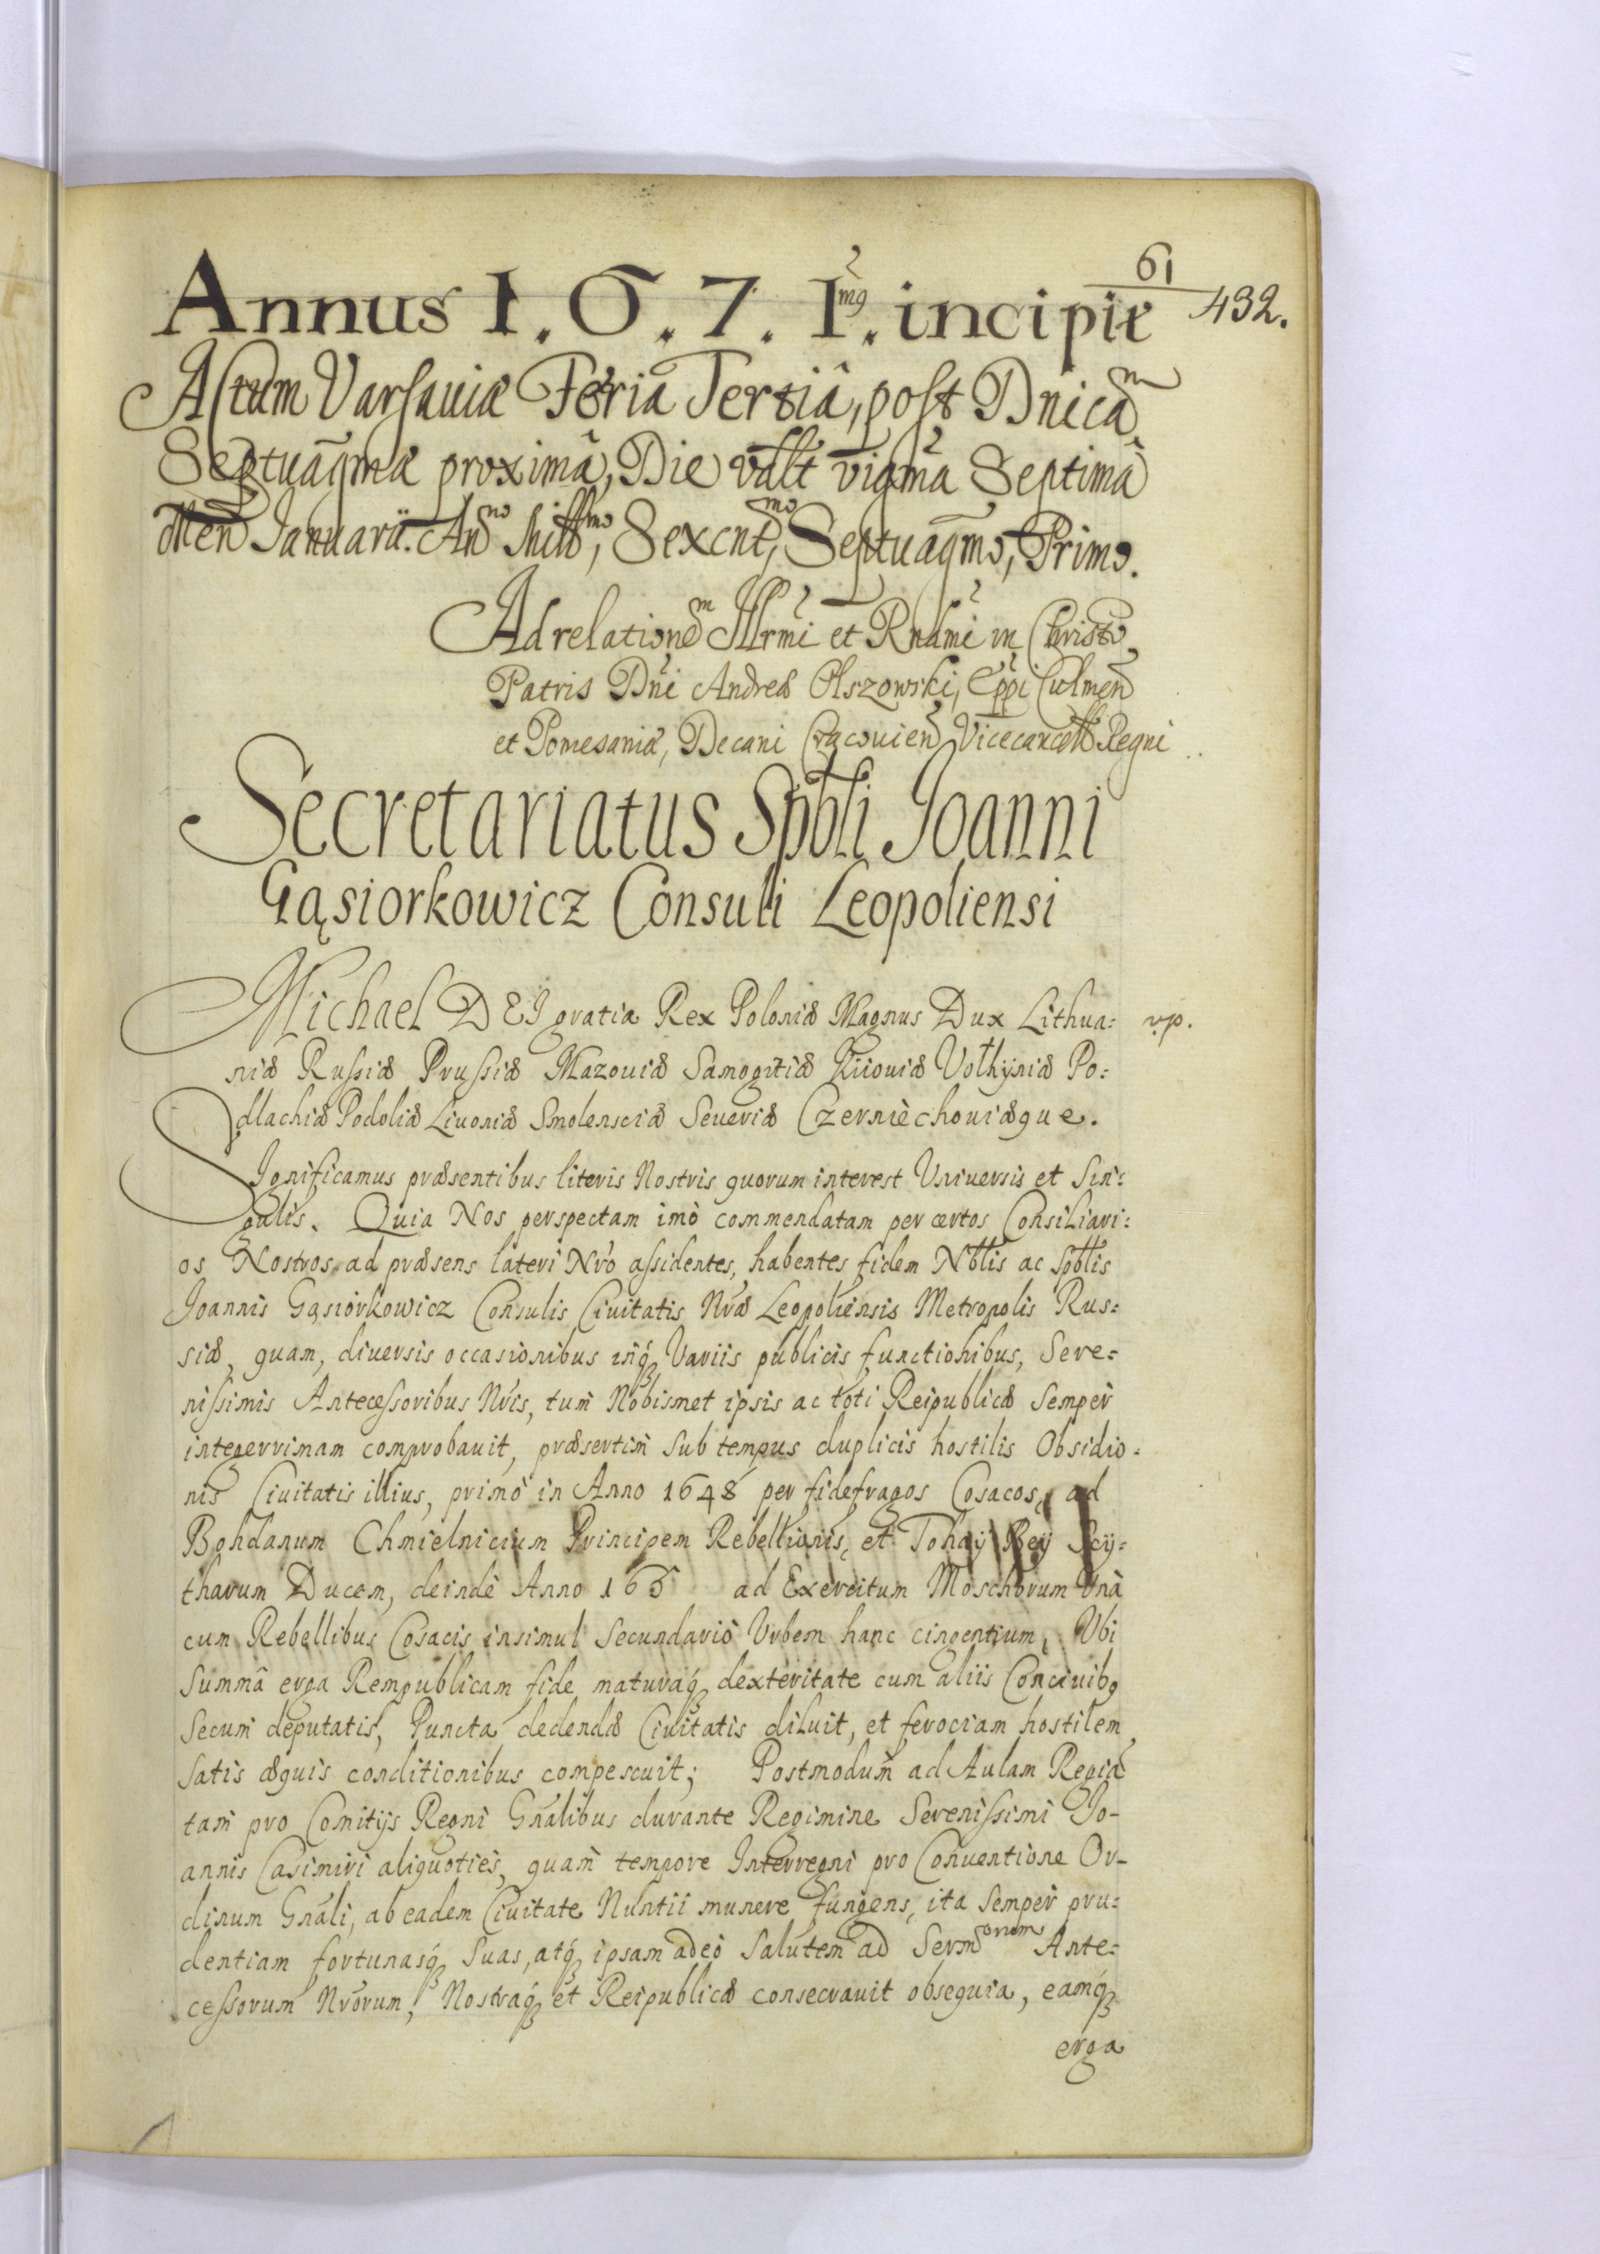 61
Annus 1.6.7.1mꝯ. incipit 432.
Actum Varsaviæ Feria Tertiâ, post Dnicam
Septuagmæ proximâ, Die vdlt vigmâ Septimâ
Men Januarii. Anno Millmo, Sexcntmo, Septuagmo, Primo.
Ad relationem Illrmi et Rndmi in Christo
Patris Dni Andreæ Olszowski, Eppi Culmen
et Pomesaniæ, Decani Cracouien Vicecancell Regni
Secretariatus Spbli Joanni
Gąsiorkowicz Consuli Leopoliensi
Michael DEI gratia Rex Poloniæ Magnus Dux Lithua: vp.
niæ Russiæ Prussiæ Mazouiæ Samogitiæ Kiiouiæ Volhyniæ Po:
dlachiæ Podoliæ Liuoniæ Smolensciæ Seueriæ Czerniechouiæque.
Significamus præsentibus literis Nostris quorum interest Vniuersis et Sin:
gulis. Quia Nos perspectam imò commendatam per certos Consiliari:
os Nostros ad præsens lateri Nro assidentes, habentes fidem Nblis ac Spblis
Joannis Gąsiorkowicz Consulis Ciuitatis Nræ Leopoliensis Metropolis Rus:
siæ, quam, diuersis occasionibus inqꝫ Variis publicis functionibus, Sere:
nissimis Antecessoribus Nris, tum Nobismet ipsis ac toti Reipublicæ Semper
integerrimam comprobauit, præsertim Sub tempus duplicis hostilis Obsidio:
nis Ciuitatis illius, primò in Anno 1648 per fidefragos Cosacos, ad
Bohdanum Chmielnicium Principem Rebellionis, et Tohay Bey Scy:
tharum Ducem, deindè Anno 165 ad Exercitum Moschorum Vnà
cum Rebellibus Cosacis insimul Secundariò Vrbem hanc cingentium, Vbi
Summâ erga Rempublicam fide maturaqꝫ dexteritate cum aliis Conciuibꝯ
Secum deputatis, Puncta dedendæ Ciuitatis diluit, et ferociam hostilem
Satis æquis conditionibus compescuit; Postmodum ad Aulam Regiã
tam pro Comitijs Regni Gnalibus durante Regimine Serenissimi Jo-
annis Casimiri aliquoties, quam tempore Interregni pro Conuentione Or-
dinum Gnali, ab eadem Ciuitate Nuntii munere fungens, ita Semper pru:
dentiam fortunasqꝫ Suas, atqꝫ ipsam adeò Salutem ad Sermorum Ante:
cessorum Nrorum, Nostraqꝫ et Reipublicæ consecrauit obsequia, eamqꝫ
erga